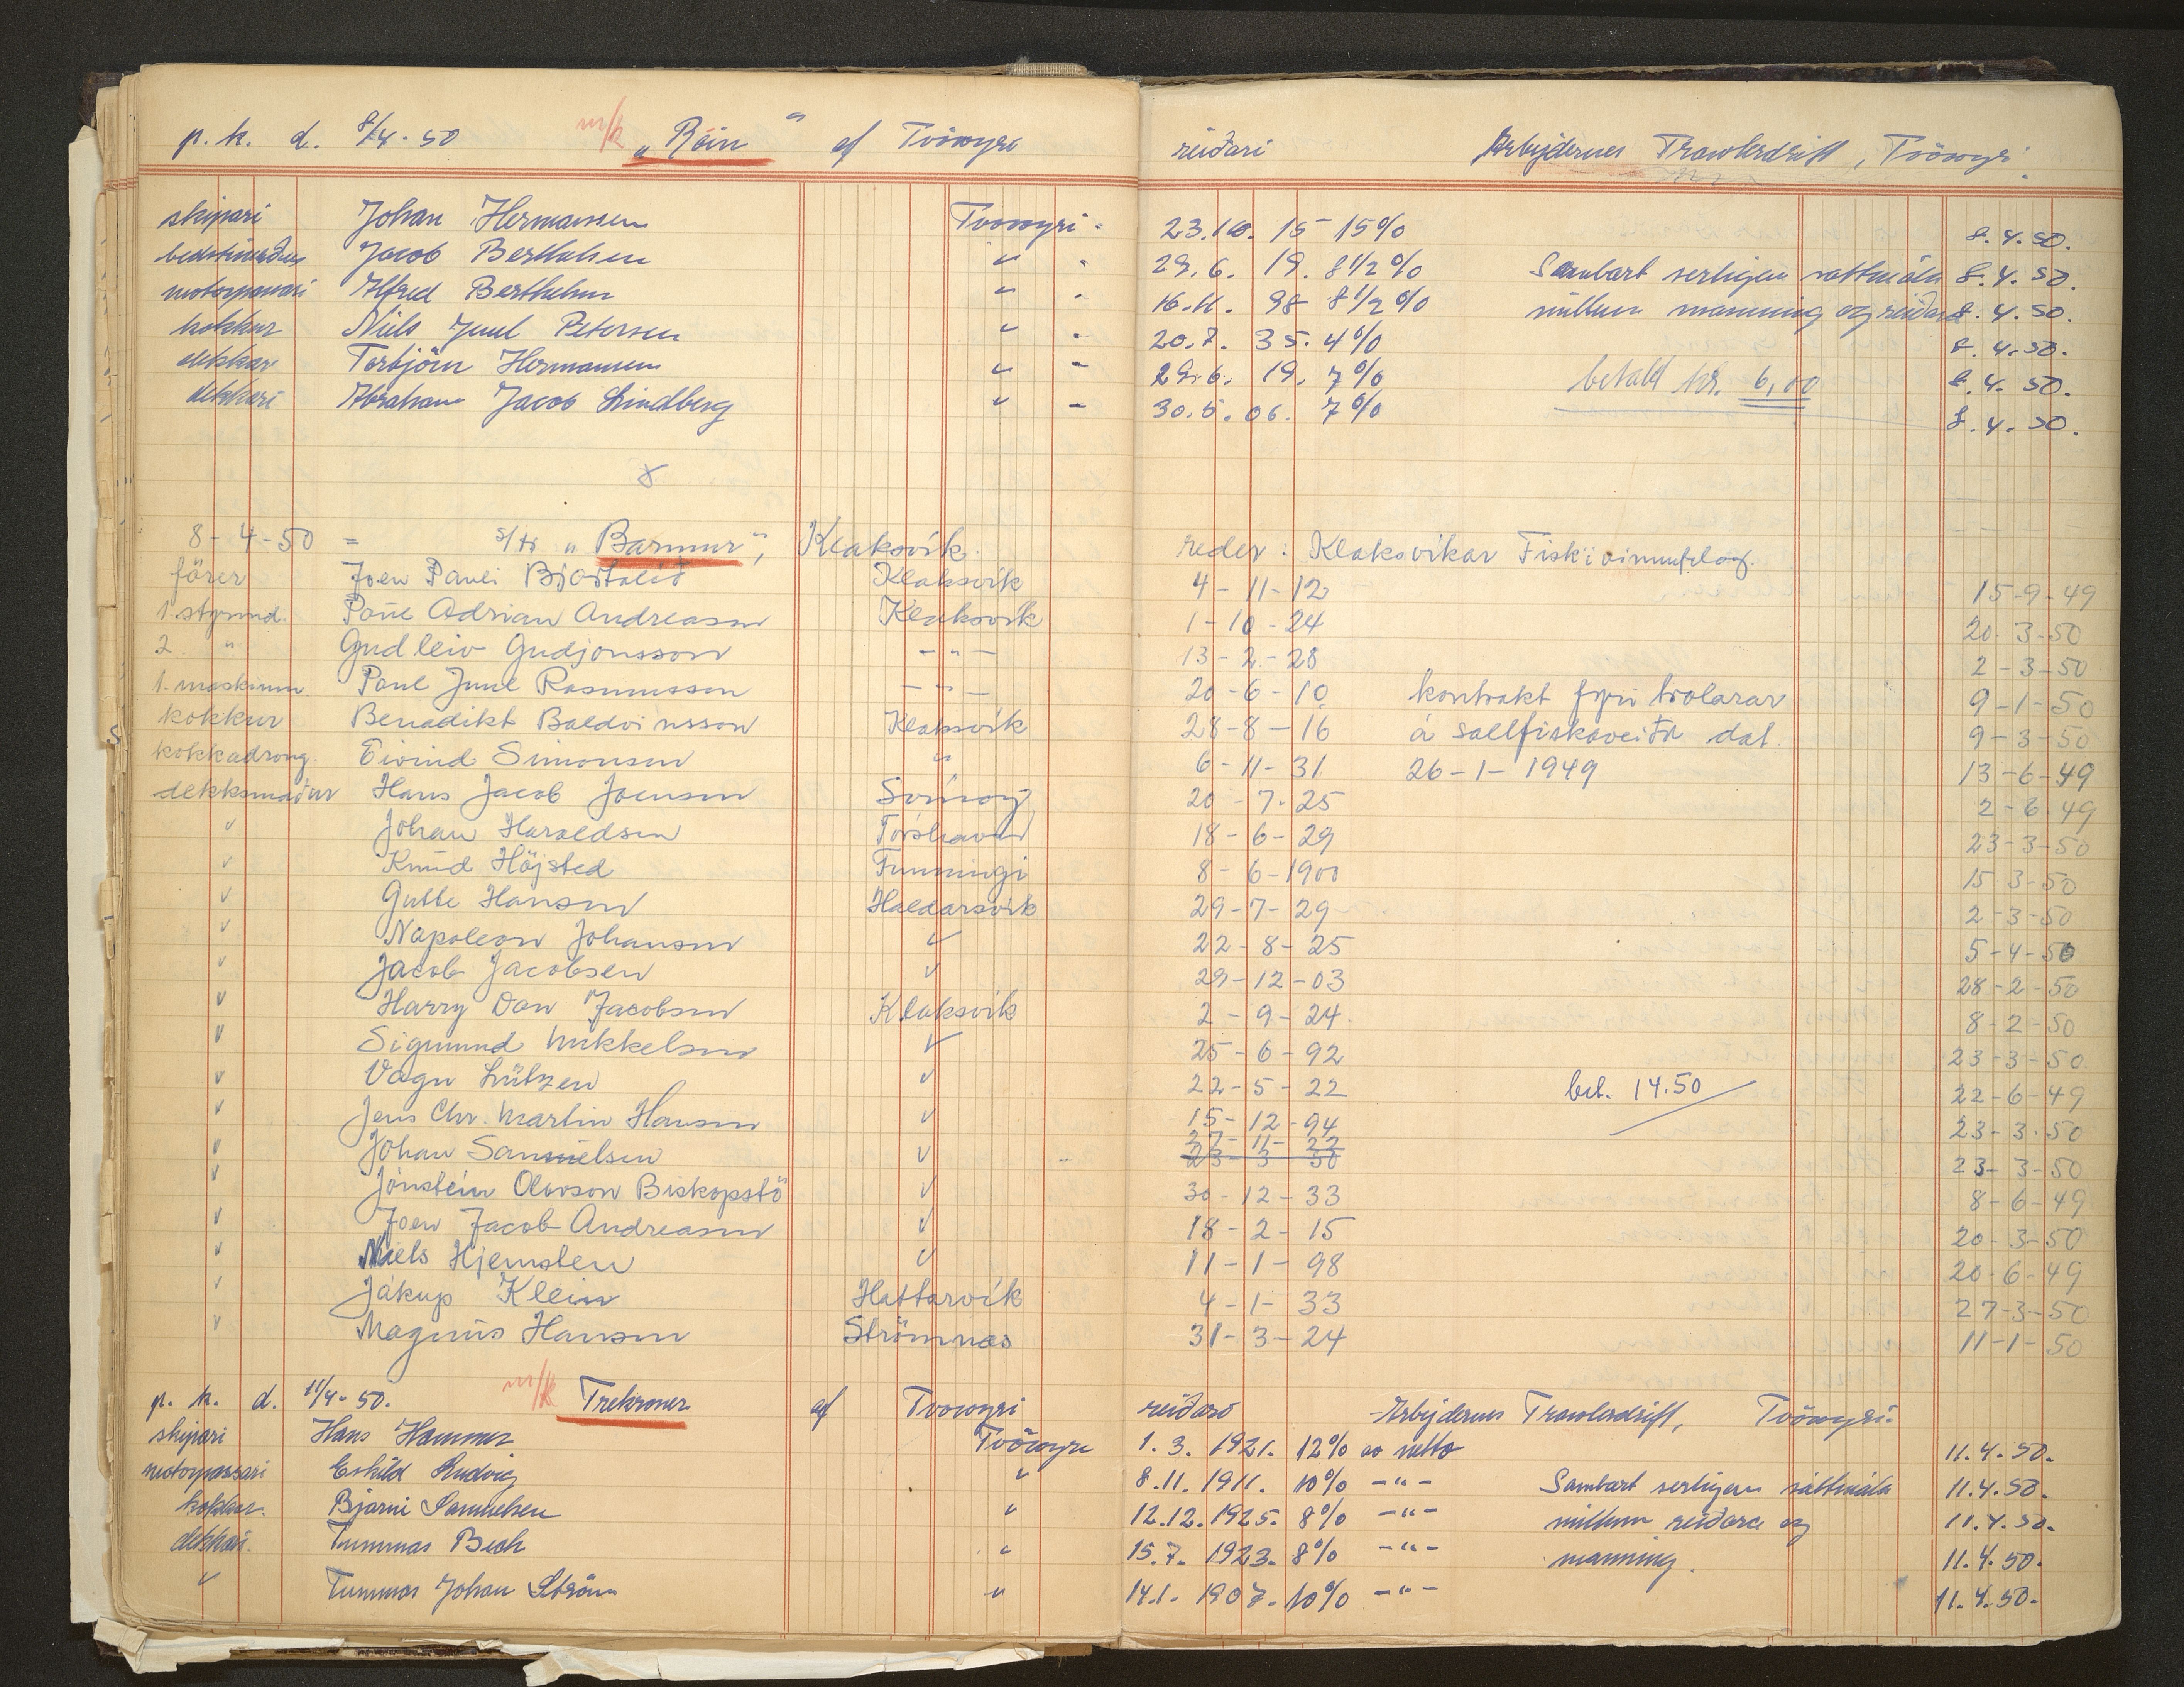 p. k. d. 8/4-50 m/k "Róin" af Tvöroyri reiðari Arbejdernes Trawlerdrift, Tvöroyri.
skipari Johan Hermansen Tvöroyri 23.10.15 15% 8.4.50.
bedstmaður Jacob Berthelsen " 29.6.19. 8 1/2% Sambart serligum sáttmála 8.4.50.
motorpassari Alfred Berthelsen " 16.11.98 8 1/2% millum manning og reiðara 8.4.50.
kokkur Niels Juul Petersen " 20.7.35. 4% 8.4.50.
dekkari Torbjörn Hermansen " 29.6.19. 7% betalt kr. 6,00 8.4.50.
dekkari Abraham Jacob Lindberg " 30.5.06. 7% 8.4.50.
8-4-50 = s/tr "Barmur", Klaksvík reder: Klaksvíkar Fiskivinnufelag.
förer Joen Pauli Bjartalíð Klaksvik 4-11-12 15-9-49
1. styrmd. Poul Adrian Andreasen Klaksvík 1-10-24 20-3-50
2. " Gudleiv Gudjonsson -"- 13-2-28 2-3-50
1. maskinm. Poul Juul Rasmussen -"- 20-6-10 kontrakt fyri trolarar 9-1-50
kokkur Benadikt Baldvinsson Klaksvík 28-8-16 á saltfiskaveiðu dat. 9-3-50
kokkadrong. Eivind Simonsen " 6-11-31 26-1-1949 13-6-49
dekksmaður Hans Jacob Joensen Svínoy 20-7-25 2-6-49
" Johan Haraldsen Tórshavn 18-6-29 23-3-50
" Knud Höjsted Funningi 8-6-1900 15-3-50
" Gutte Hansen Haldarsvík 29-7-29 2-3-50
" Napoleon Johansen " 22-8-25 5-4-50
" Jacob Jacobsen " 29-12-03 28-2-50
" Harry Dan Jacobsen Klaksvík 2-9-24 8-2-50
" Sigmund Mikkelsen " 25-6-92 23-3-50
" Vagn Lützen " 22-5-22 bet. 14.50 22-6-49
" Jens Chr. Martin Hansen " 15-12-94 23-3-50
" Johan Samuelsen " 23-3-50
" Jónstein Olavson Biskopstö " 30-12-33 8-6-49
" Joen Jacob Andreasen " 18-2-15 20-3-50
" Niels Hjemsten " 11-1-98 20-6-49
" Jákup Klein Hattarvík 4-1-33 27-3-50
" Magnus Hansen Strömnæs 31-3-24 11-1-50
p. k. d. 11/4-50. m/k Trekroner af Tvöroyri reiðari Arbejdernes Trawlerdrift, Tvöroyri.
skipari Hans Hammer Tvöroyri 1.3.1921. 12% av netto 11.4.50.
motorpassari Eskild Ludvig " 8.11.1911. 10% -"- Sambart serligum sáttmála 11.4.50.
kokkur. Bjarni Samuelsen " 12.12.1925. 8% -"- millum reiðara og 11.4.50.
dekkari. Tummas Bech " 15.7.1923. 8% -"- manning. 11.4.50.
" Tummas Johan Ström " 14.1.1907. 10% -"- 11.4.50.